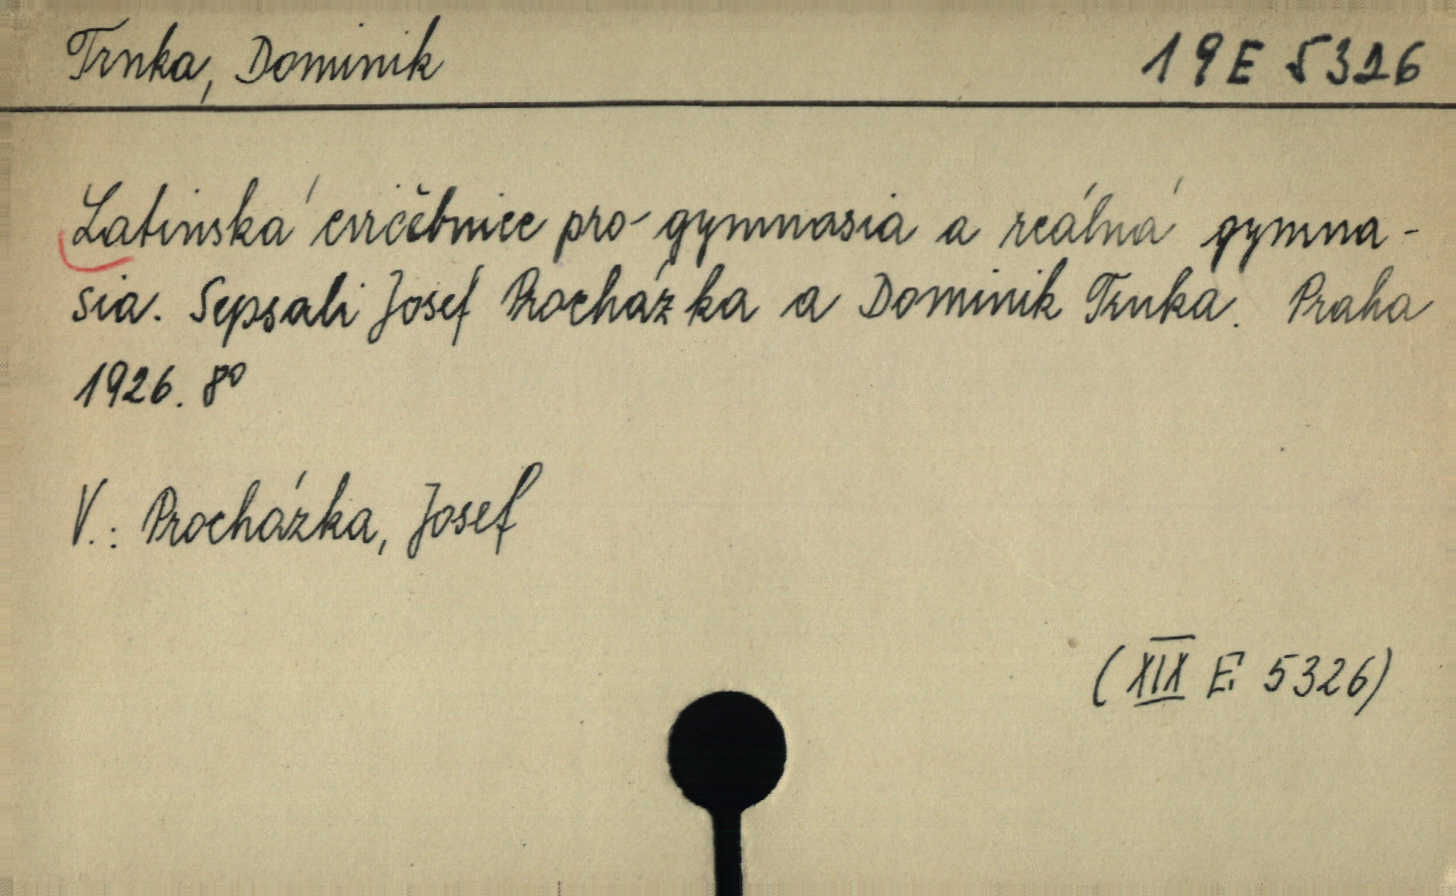 Trnka, Dominik 19 E 5326
Latinská cvičebnice pro gymnasia a reálná gymna-
sia. Sepsali Josef Procházka a Dominik Trnka. Praha
1926. 8°
V.: Procházka, Josef
(XIX E 5326)